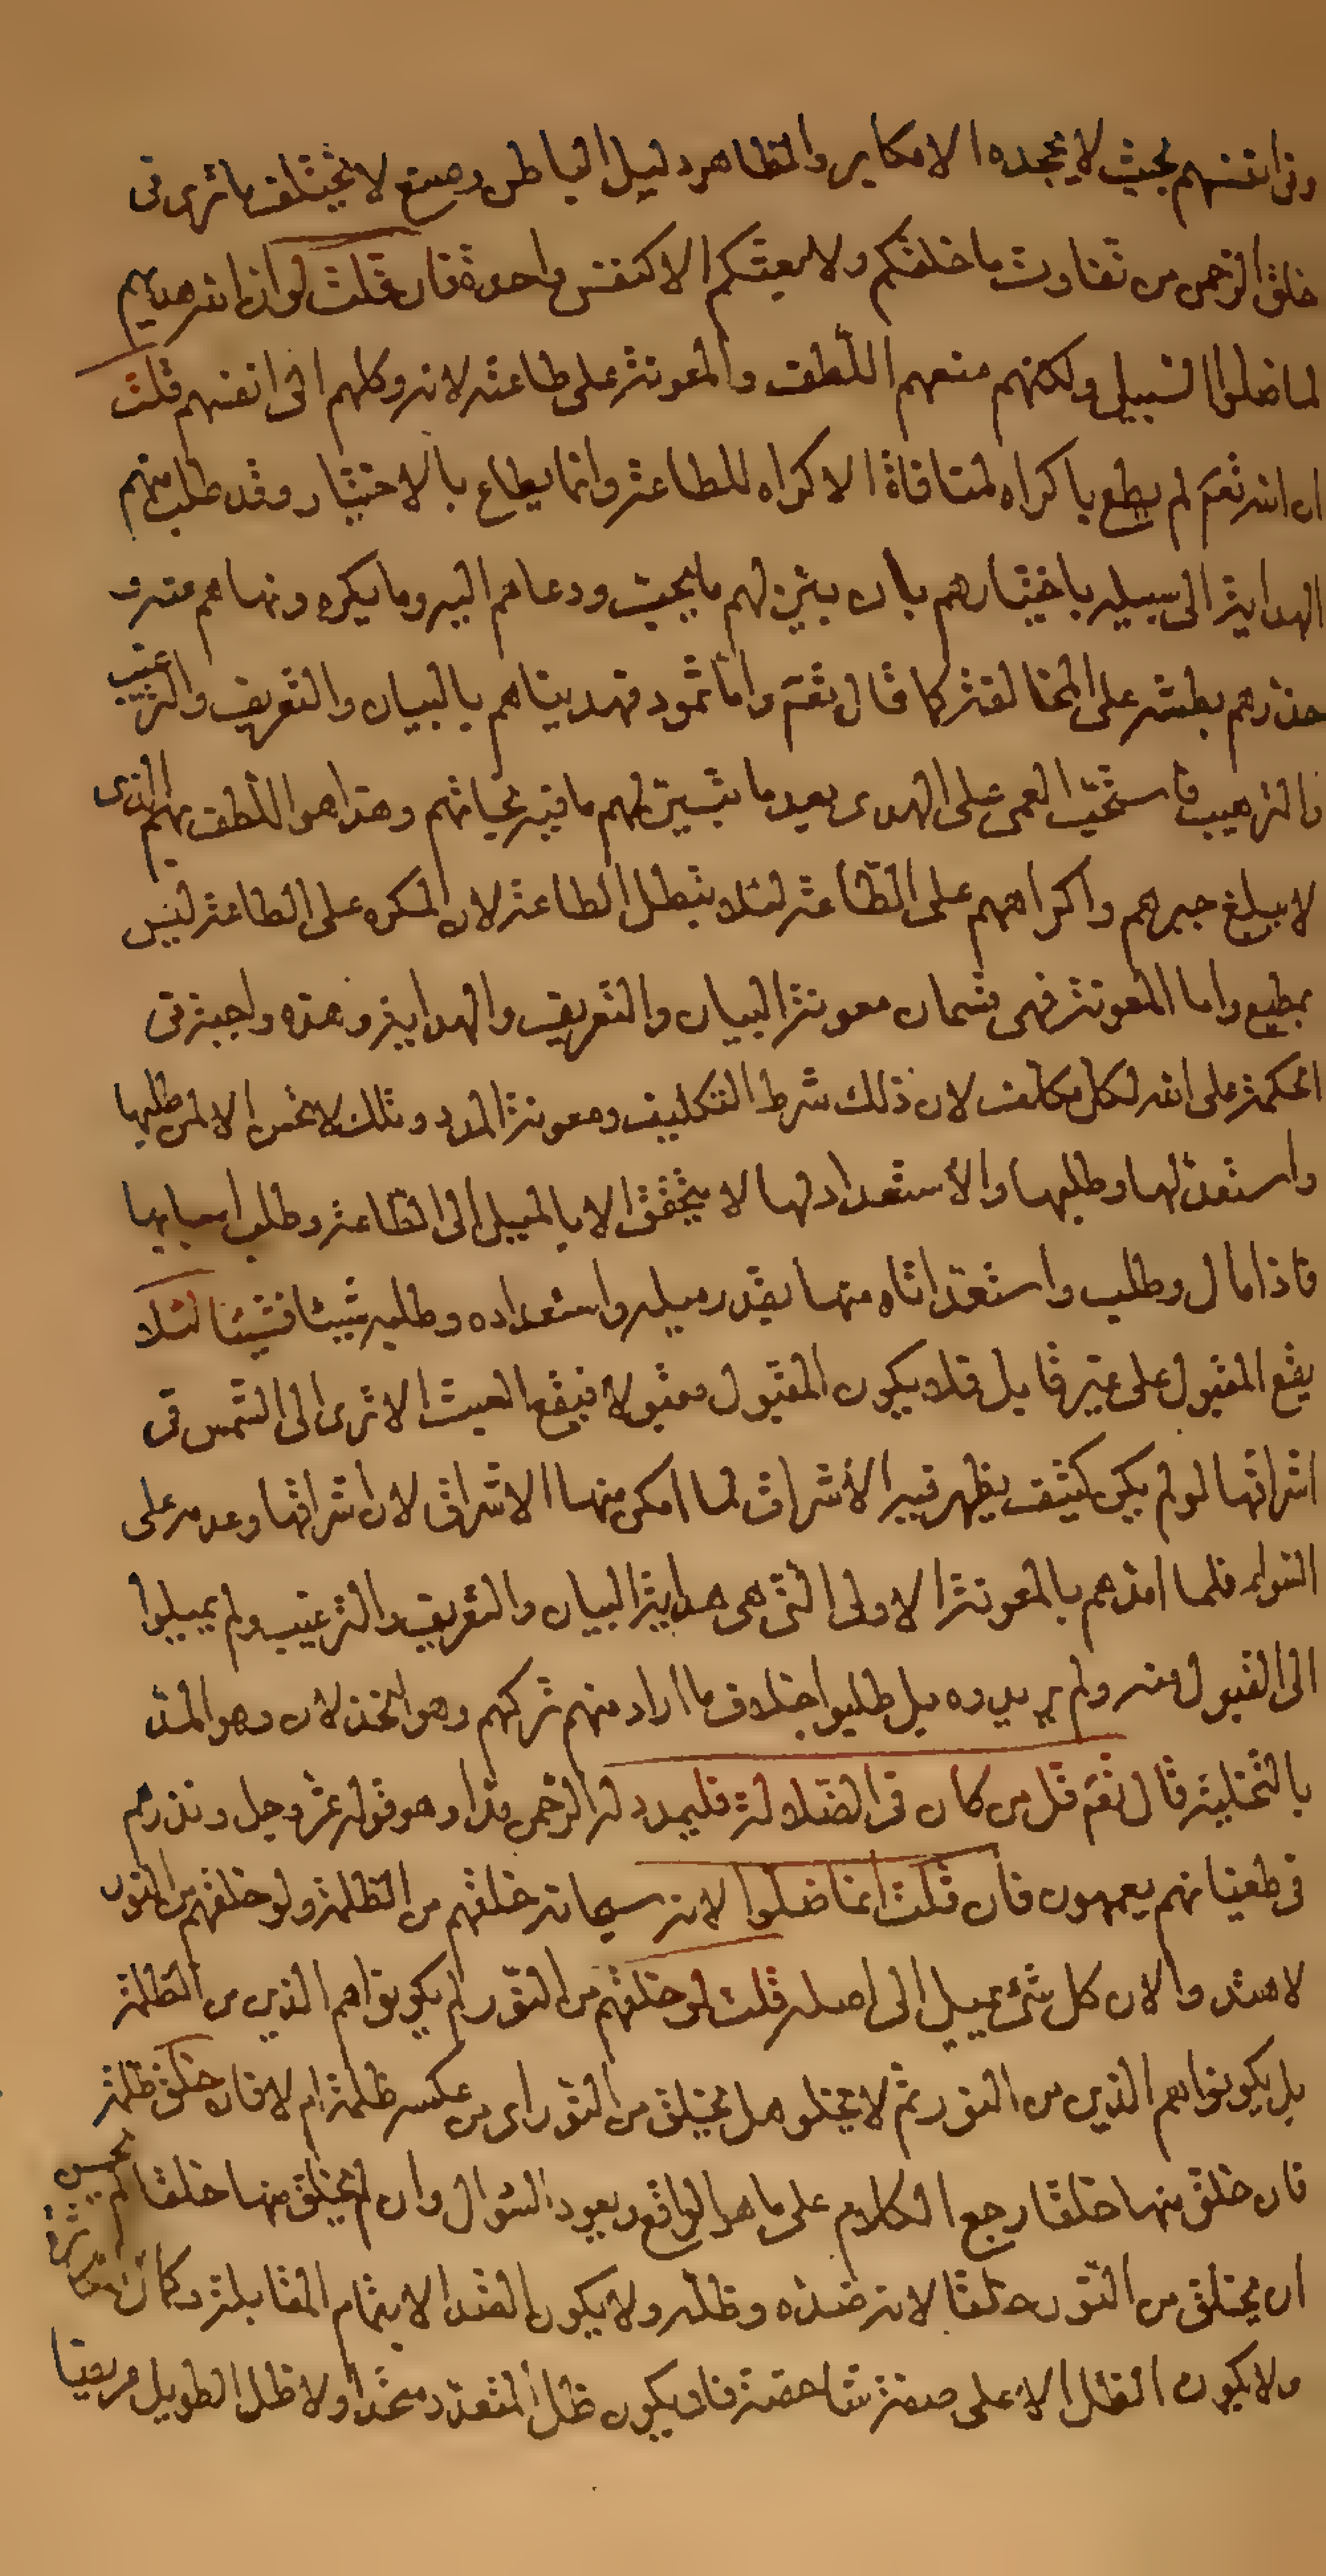 وفى انفسهم بحيث لا يجحده الا مكابر والظاهر دليل الباطن وصنع لا يختلف ما ترى فى
خلق الرحمن من تفاوت ما خلقكم ولا بعثكم الا كنفس واحدة فان قلت لو ان الله هديهم
لما ضلوا السبيل ولكنهم منعهم اللطف والمعونة على طاعته لانه وكلهم الى انفسهم قلت
ان الله تعم لم يطع باكراه لمنافاة الاكراه للطاعة وانما يطاع بالاختيار وقد طلب منهم
الهداية الى سبيله باختيارهم بان بين لهم ما يحب ودعاهم اليه وما يكره ونهاهم عنه و
حذرهم بطشه على المخالفة كما قال تعم واما ثمود فهديناهم بالبيان والتعريف والترغيب
والترهيب فاستحبوا العمى على الهدى بعد ما تبين لهم ما فيه نجاتهم وهذا هو اللطف بهم الذى
لا يبلغ جبرهم واكراههم على الطاعة لئلا تبطل الطاعة لان المكره على الطاعة ليس
بمطيع واما المعونة فهى قسمان معونة البيان والتعريف والهداية وهذه واجبة فى
الحكمة على الله لكل مكلف لان ذلك شرط التكليف ومعونة المدد وتلك لا تحسن الا لمن طلبها
واستعد لها وطلبها والاستعداد لها لا يتحقق الا بالميل الى الطاعة وطلب اسبابها
فاذا مال وطلب واستعد اتاه منها بقدر ميله واستعداده وطلبه شيئا فشيئا لئلا
يقع المقبول على غير قابل فلا يكون المقبول مقبولا فيقع العبث الا ترى الى الشمس فى
اشراقها لو لم يكن كثيف يظهر فيه الاشراق لما امكن منها الاشراق لان اشراقها وعدمه على
السواء فلما امدهم بالمعونة الاولى التى هى هداية البيان والتعريف والترغيب ولم يميلوا
الى القبول منه ولم يريدوه بل طلبوا خلاف ما اراد منهم تركهم وهو الخذلان وهو المد
بالتخلية قال تعم قل من كان فى الضلالة فليمدد له الرحمن مدا وهو قوله عز وجل ونذرهم
فى طغيانهم يعمهون فان قلت انما ضلوا لانه سبحانه خلقهم من الظلمة ولو خلقهم من النور
لاهتدوا لان كل شئ يميل الى اصله قلت لو خلقهم من النور لم يكونوا هم الذين من الظلمة
بل يكونوا هم الذين من النور ثم لا يخلو هل يخلق من النور اى من عكسه ظلمة ام لا فان خلق ظلمة
فان خلق منها خلقا رجع الكلام على ما هو الواقع ويعود السؤال وان لم يخلق منها خلقا لم يحسن
ان يخلق من النور خلقا لانه ضده وظله ولا يكون الضد الا بتمام المقابلة وكمال
ولا يكون الظل الا على صفة شاخصة فلا يكون ظل المتعدد متحدا ولا ظل الطويل مربعا